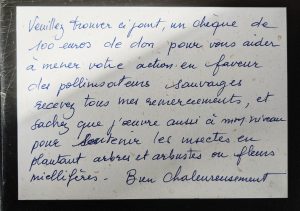 Veuillez trouver ci joint, un chèque de
100 euros de don pour vous aider
à mener votre action en faveur
des pollinisateurs sauvages
recevez tous mes remerciements, et
sachez que j'œuvre aussi à mon niveau
pour soutenir les insectes en
plantant arbres et arbustes ou fleurs
mellifères. Bien Chaleureusement